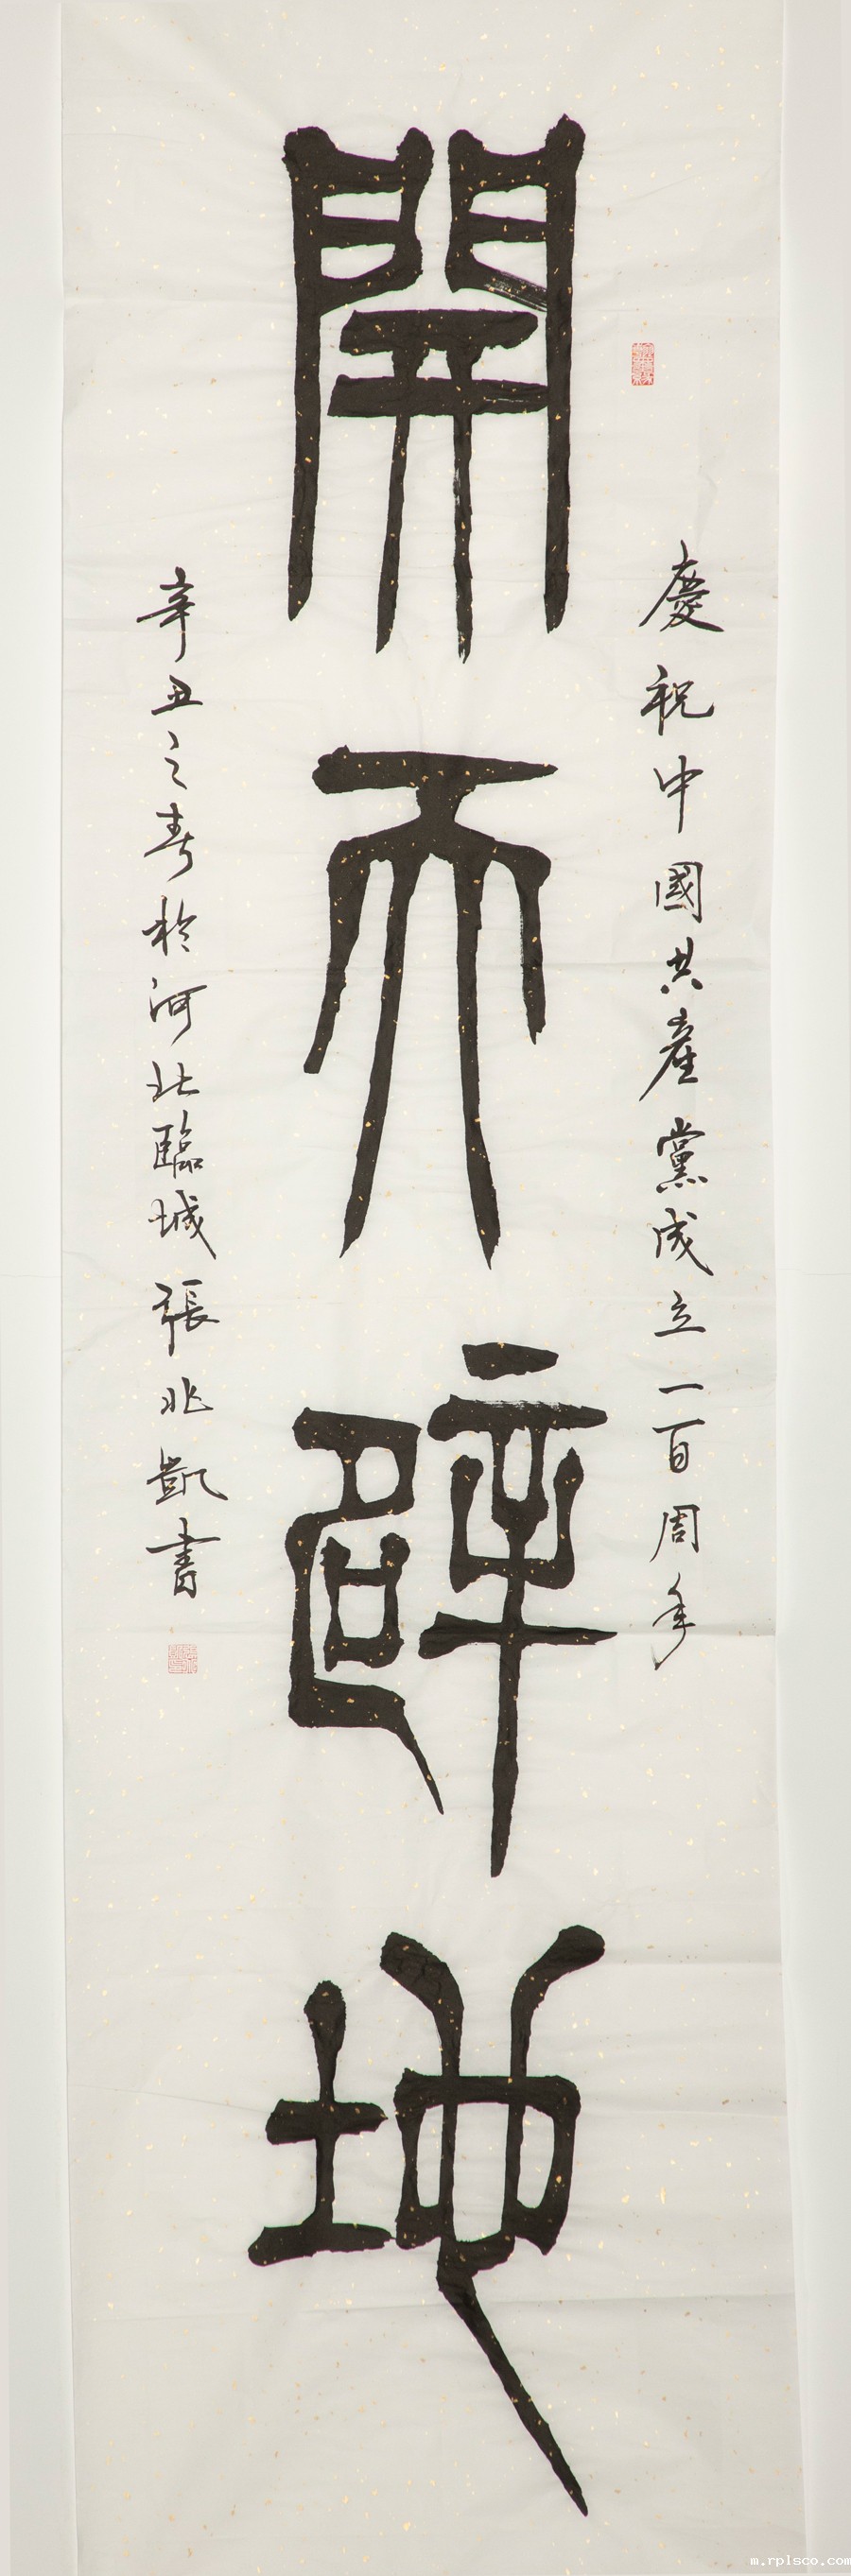 慶祝中國共產黨成立一百周年
開天辟地
辛丑之春於河北臨城張兆凱書
m.rplsco.com